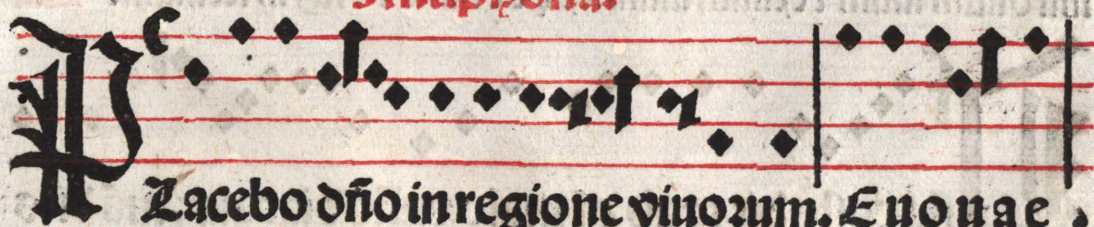 Antiphona.
Placebo dño in regione viuorum. E u o u a e .